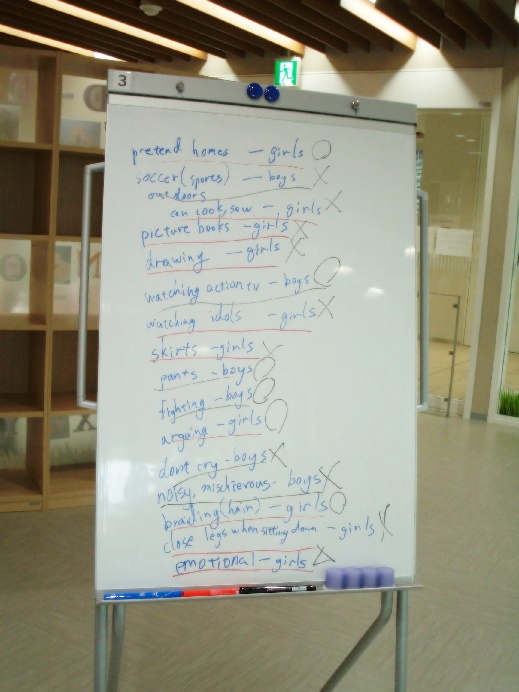 3
pretend homes — girls ○
soccer (spores) — boys ×
outdoors
can cook, sow —, girls ×
picture books — girls ×
drawing — girls ×
watching action tv — boys ○
watching idols — girls ×
skirts — girls ×
pants — boys ○
fighting — boys ○
arguing — girls ○
don't cry — boys ×
noisy, mischievous — boys ×
braiding (hair) — girls ○
close legs when sitting down — girls ×
emotional — girls △